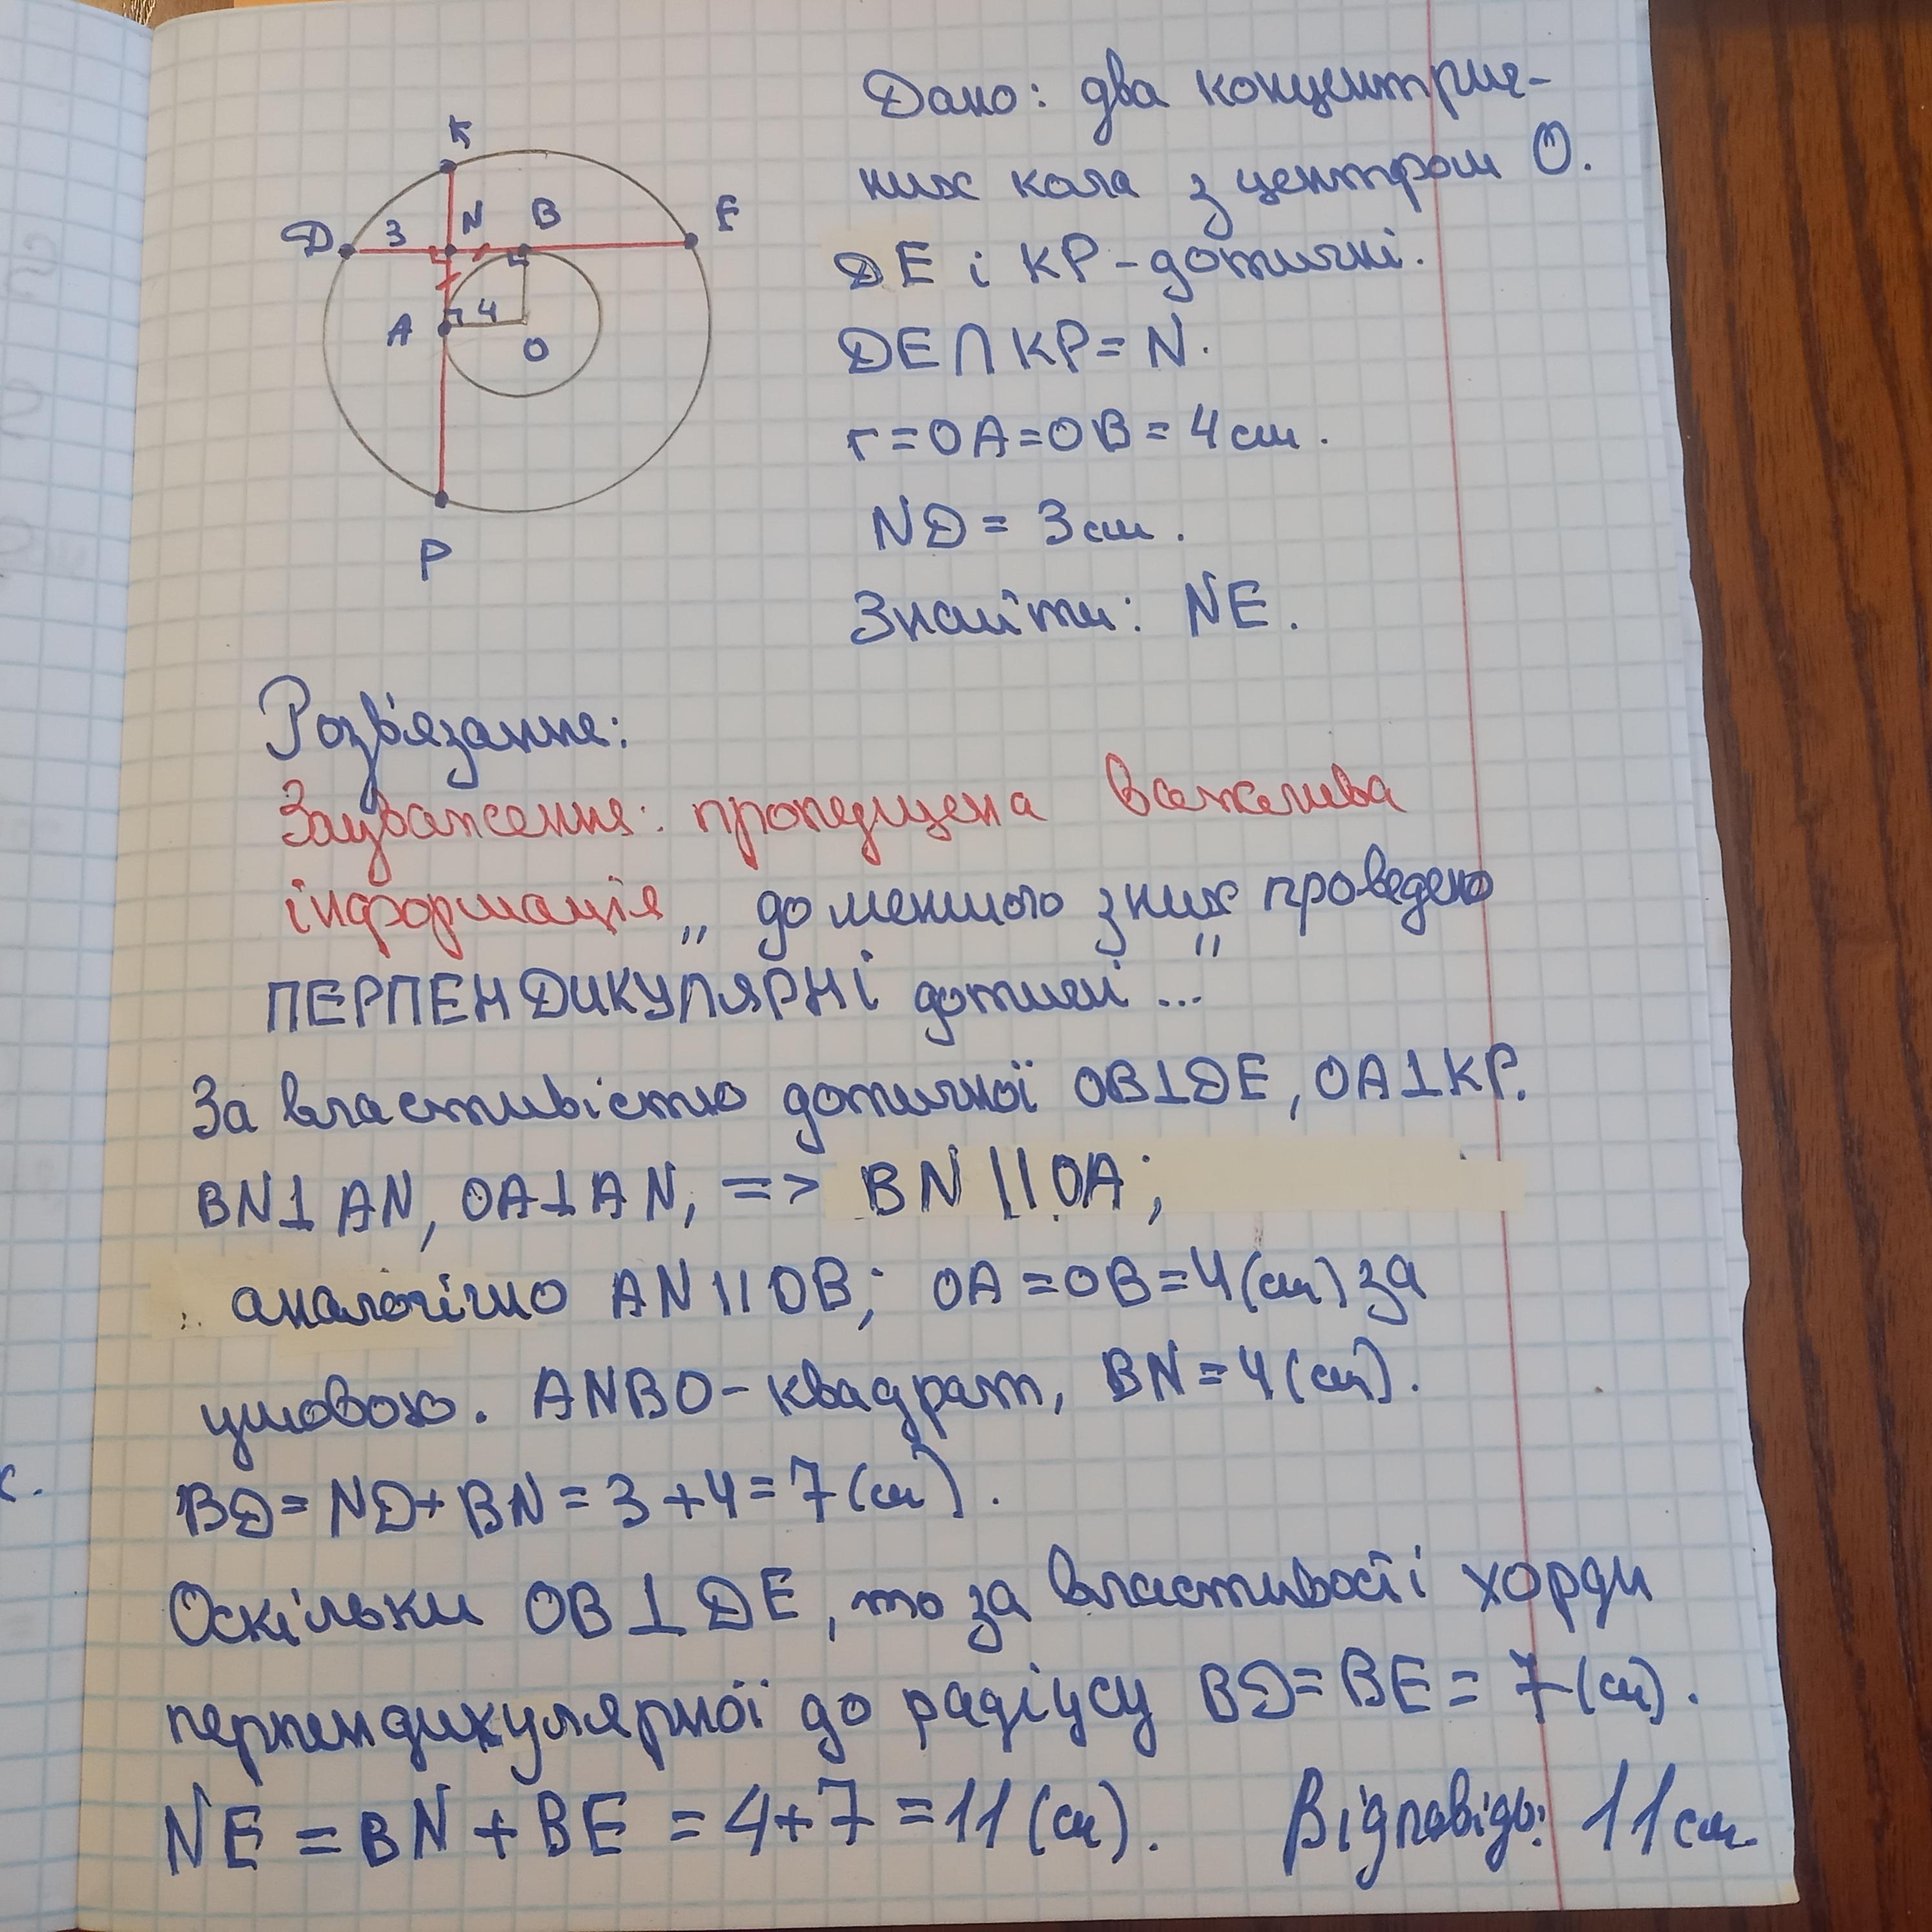 К
Д
3
N
B
E
A
4
O
P
Дано: два концентрич-
них кола з центром О.
DE і KP - дотичні.
DE∩KP = N.
r = OA = OB = 4 см.
ND = 3 см.
Знайти: NE.
Розв'язання:
Зауваження: пропущена важлива
інформація „ до меншого з них проведено
ПЕРПЕНДИКУЛЯРНІ дотичні ..."
За властивістю дотичної OB⊥DE, OA⊥KP.
BN⊥AN, OA⊥AN, => BN || OA;
аналогічно AN || OB; OA = OB = 4 (см) за
умовою. ANBO - квадрат, BN = 4 (см).
BD = ND + BN = 3 + 4 = 7 (см).
Оскільки OB⊥DE, то за властивості хорди
перпендикулярної до радіусу BD = BE = 7 (см).
NE = BN + BE = 4 + 7 = 11 (см). Відповідь: 11 см
с.